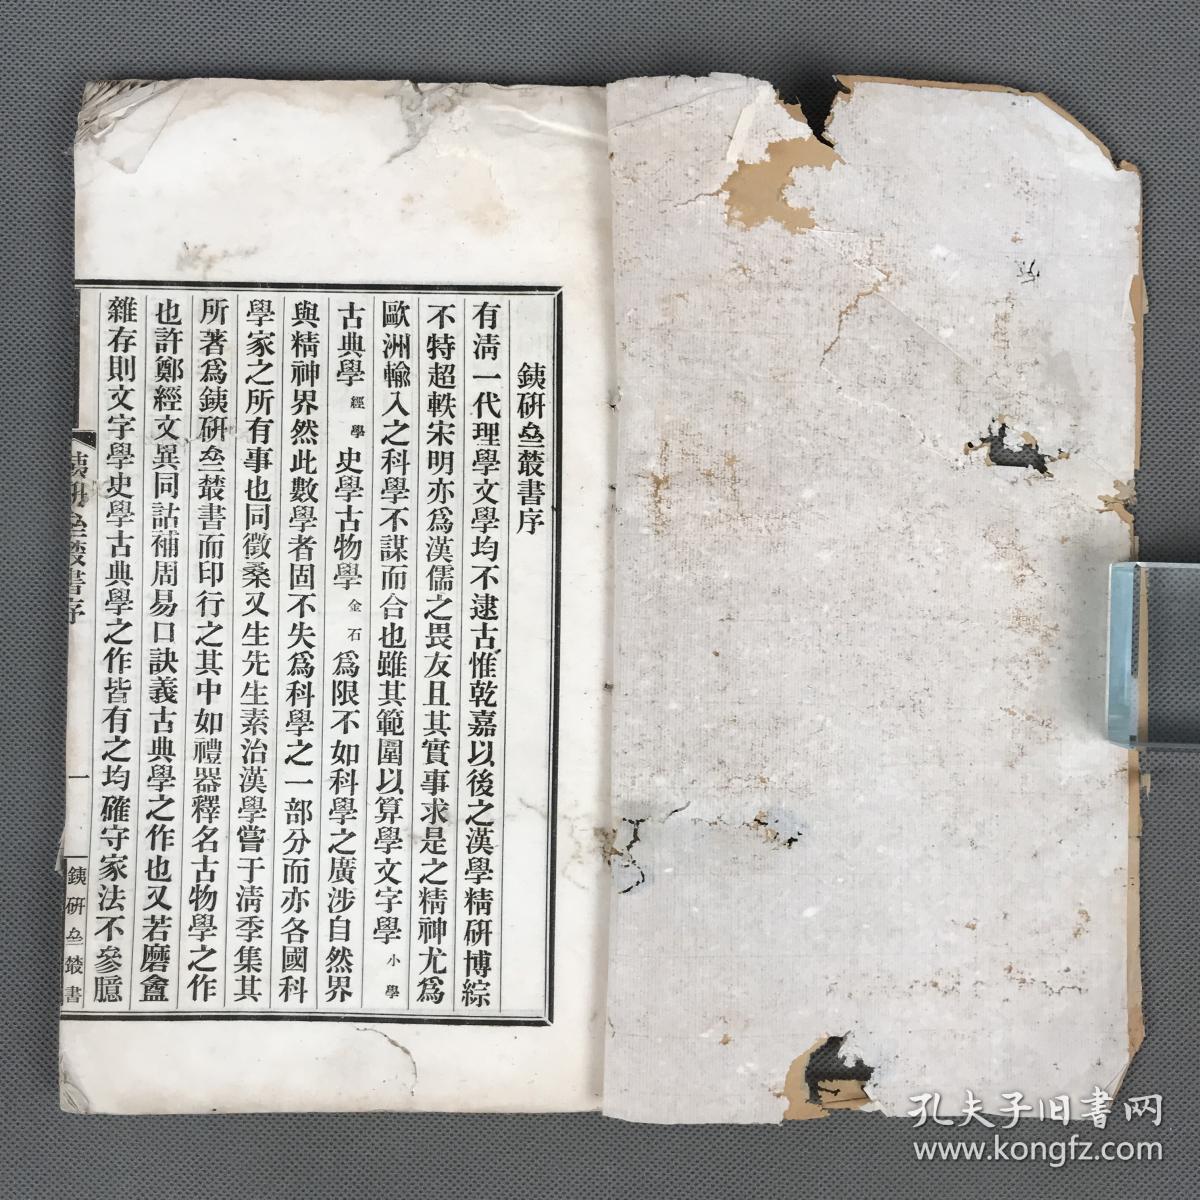 銕硏𠫤叢書序
有淸一代理學文學均不逮古惟乾嘉以後之漢學精硏博綜
不特超軼宋明亦爲漢儒之畏友且其實事求是之精神尤爲
歐洲輸入之科學不謀而合也雖其範圍以算學文字學小學
古典學經學史學古物學金石爲限不如科學之廣涉自然界
與精神界然此數學者固不失爲科學之一部分而亦各國科
學家之所有事也同徵桑又生先生素治漢學嘗于淸季集其
所著爲銕硏𠫤叢書而印行之其中如禮器釋名古物學之作
也許鄭經文異同詁補周易口訣義古典學之作也又若磨盦
雜存則文字學史學古典學之作皆有之均確守家法不參臆
銕硏𠫤叢書序
一
銕硏𠫤叢書
孔夫子旧书网
www.kongfz.com